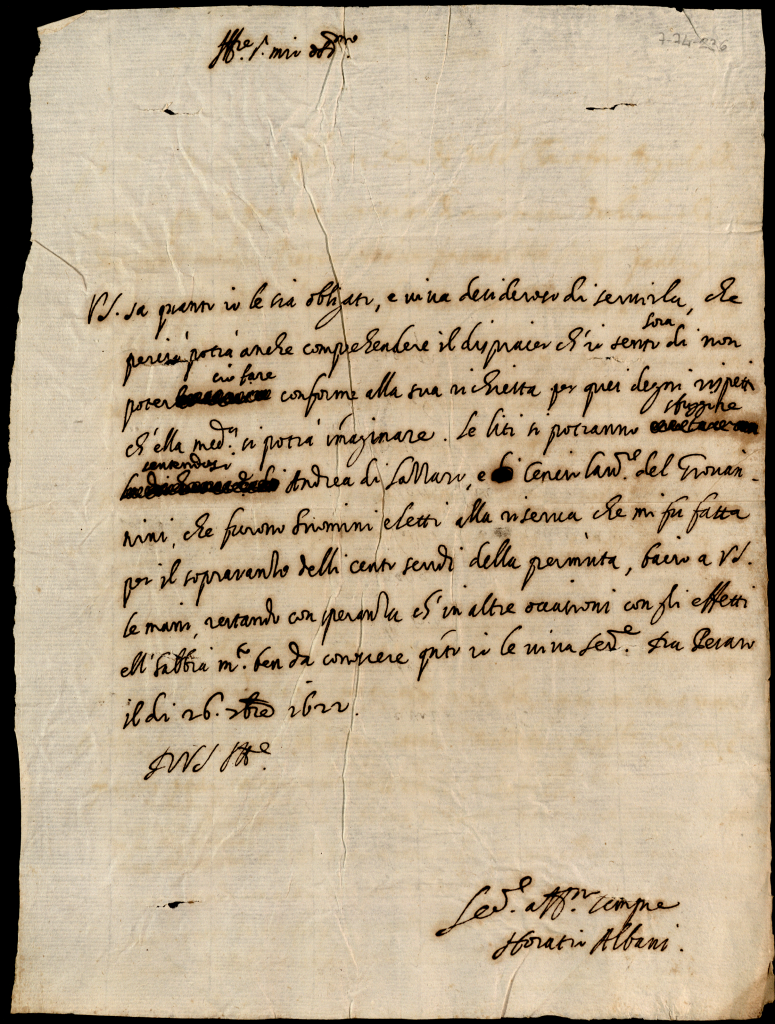 Ill.re S.r mio oss.mo
7-74-226
V.S. sa quanto io le sia obligato, e viva desideroso di servirla, che
perciò potrà anche comprehendere il dispiacer ch'io sento di non
poter
ciò fare
conforme alla sua richiesta per quei degni rispetti
ch'ella med.a si potrà imaginare. Le liti si potranno
contendosi
Andrea di Lazzaro, e Cencio lav.re del Giovan-
nini, che furono huomini eletti alla riserva che mi fu fatta
per il sopravanzo delli cento scudi della permuta, bacio a V.S.
le mani, restando con speranza ch'in altre occasioni con gli effetti
ell'habbia m.to ben da conoscere q.nto io le viva ser.re Da Pesaro
il di 26. 7bre 1622.
D V.S. Ill.re
Ser.re aff.mo sempre
Horatio Albani.